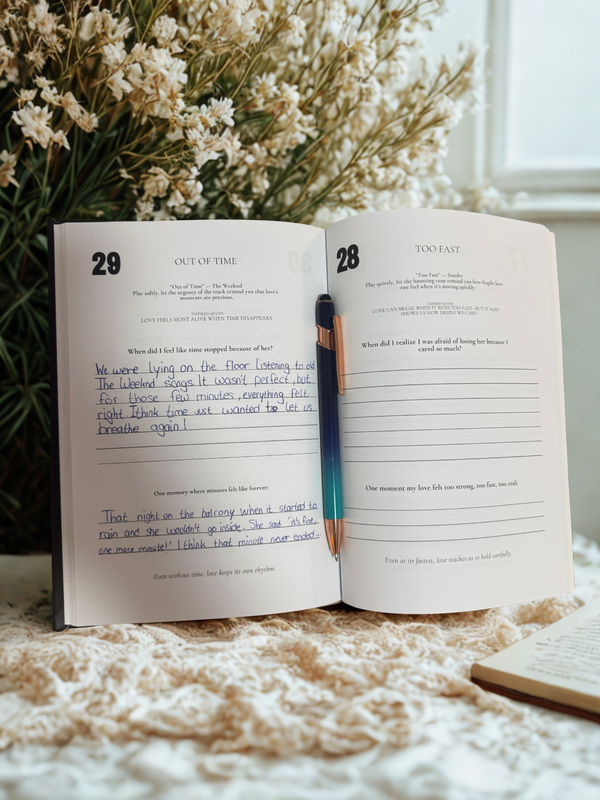 29
OUT OF TIME
"Out of Time" — The Weeknd
Play softly, let the urgency of the track remind you that love's
moments are precious.
INSPIRED QUOTE:
LOVE FEELS MOST ALIVE WHEN TIME DISAPPEARS.
When did I feel like time stopped because of her?
We were lying on the floor listening to old
The Weeknd songs. It wasn't perfect, but
for those few minutes, everything felt
right. I think time just wanted to let us
breathe again!
One memory where minutes felt like forever:
That night on the balcony when it started to
rain and she wouldn't go inside. She said "it's fine,
one more minute!" I think that minute never ended..
Even without time, love keeps its own rhythm.
28
TOO FAST
"Too Fast" — Sonder
Play quietly, let the haunting tone remind you how fragile love
can feel when it's moving quickly.
INSPIRED QUOTE:
LOVE CAN BREAK WHEN IT RUNS TOO FAST—BUT IT ALSO
SHOWS US HOW DEEPLY WE CARE.
When did I realize I was afraid of losing her because I
cared so much?
One moment my love felt too strong, too fast, too real:
Even at its fastest, love teaches us to hold carefully.